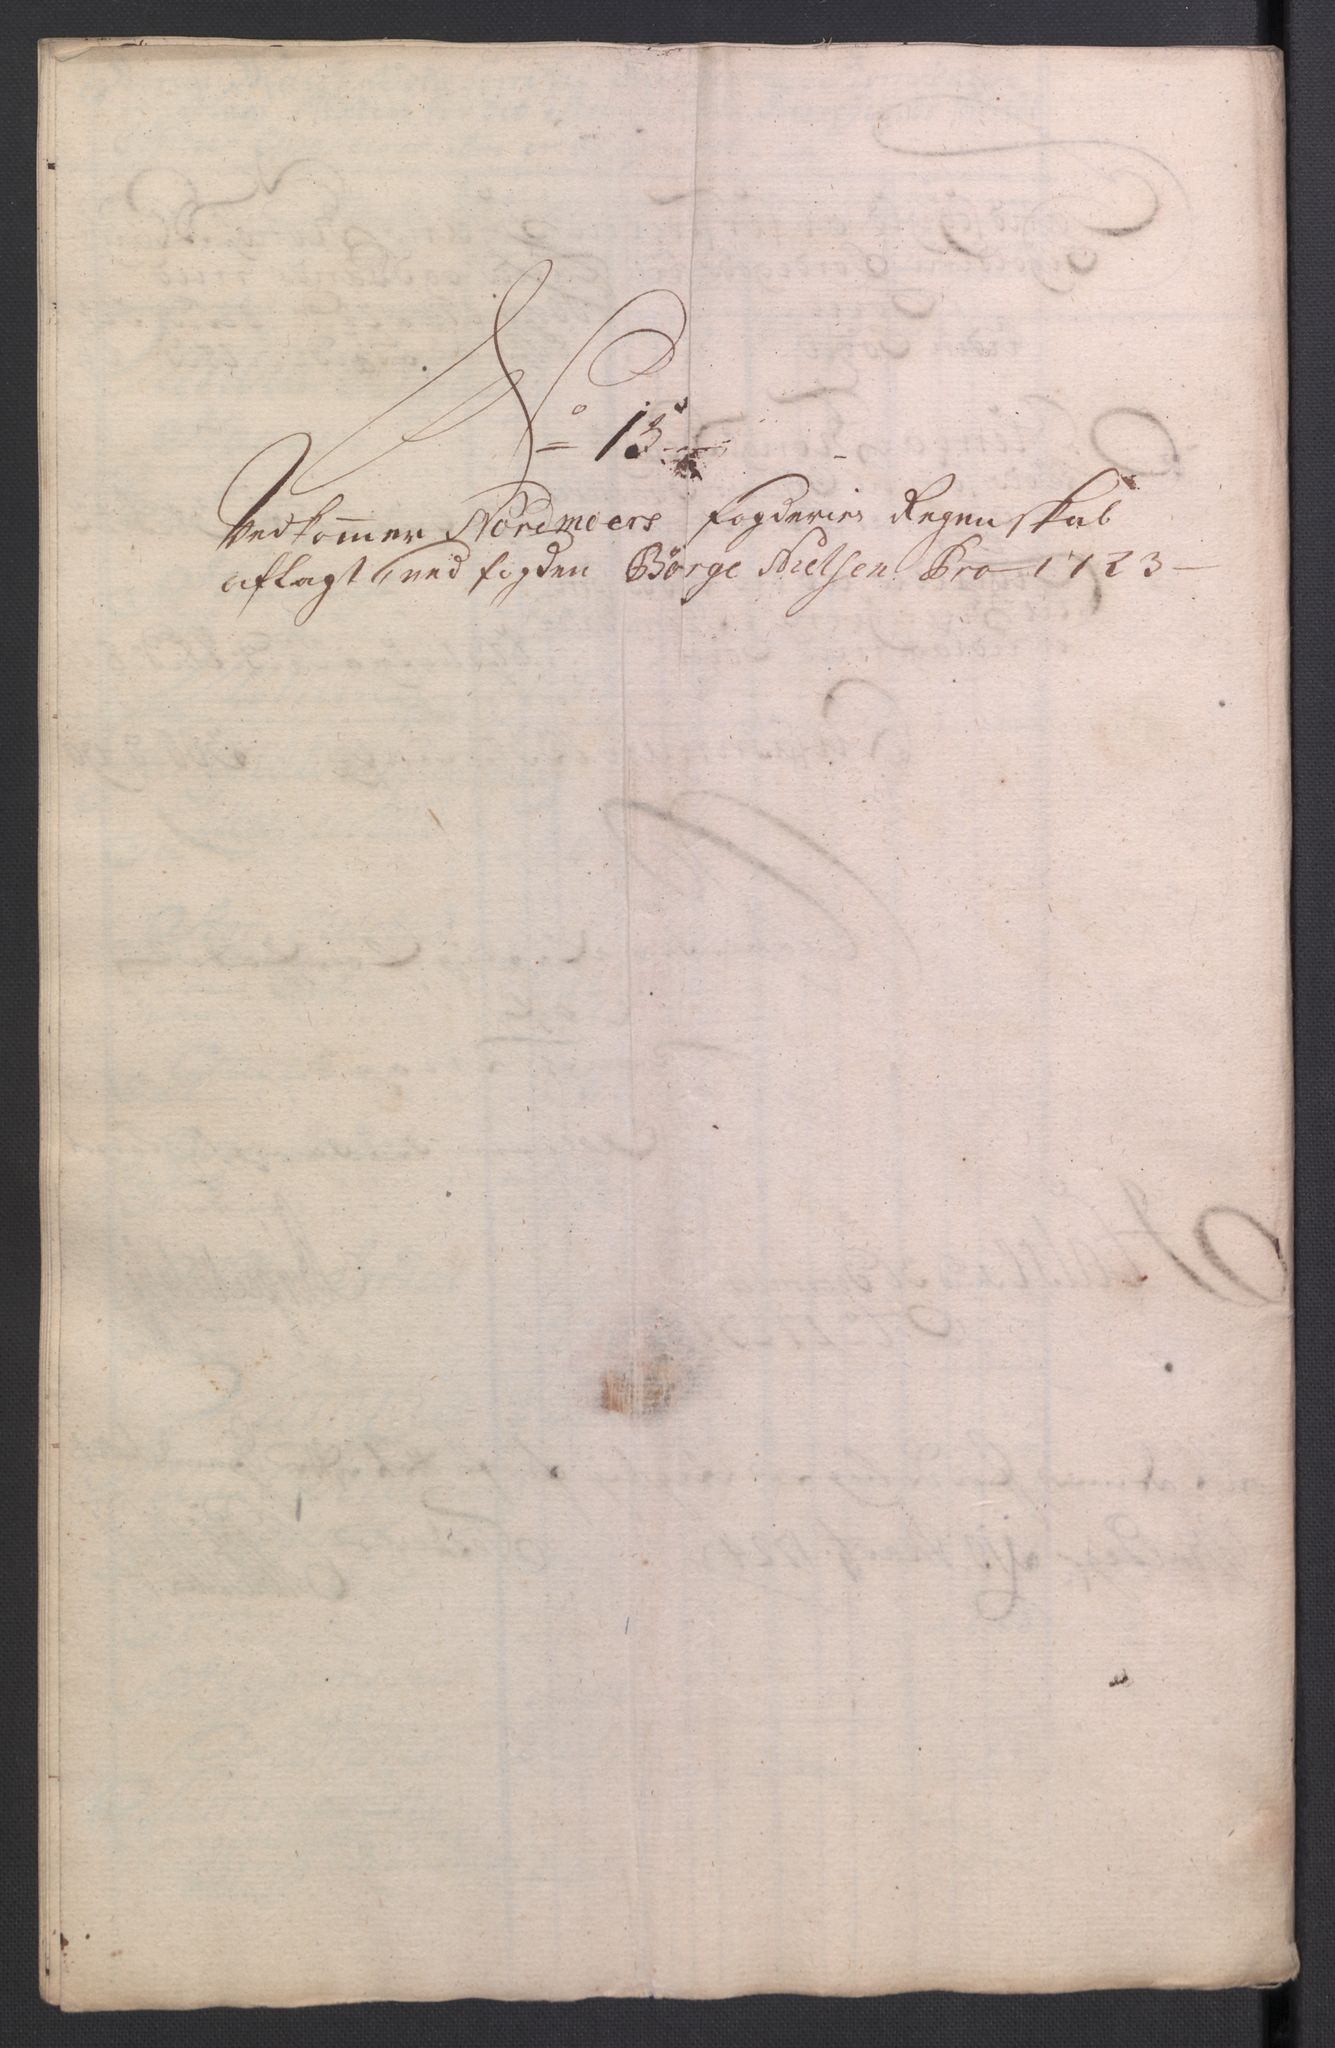 No 13
Vedkommer Nordmoers fogderies Regenskab
aflagt ved fogden Børge Nielsen Pro 1723